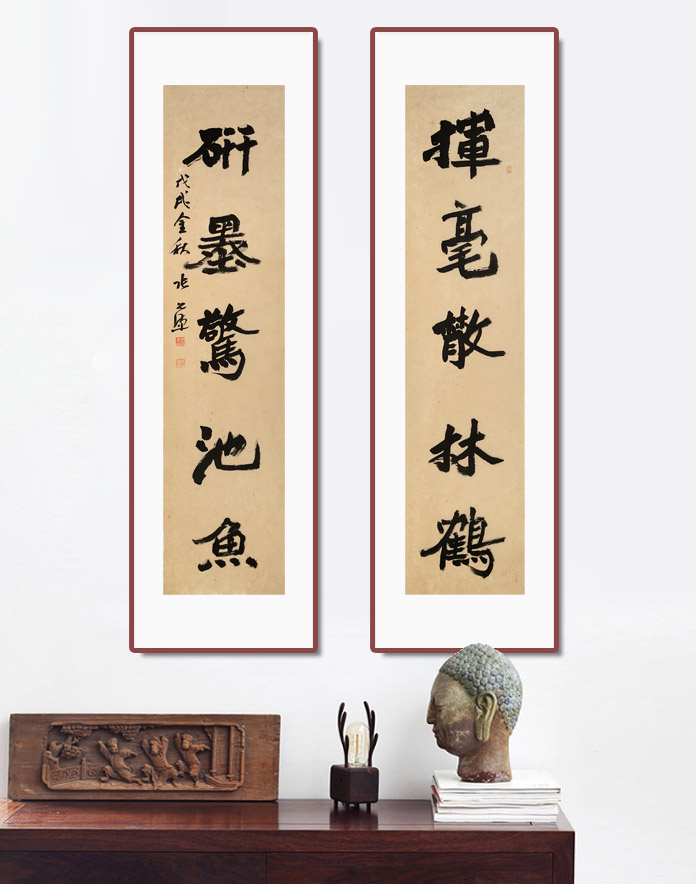 揮毫散林鶴
研墨驚池魚
戊戌金秋